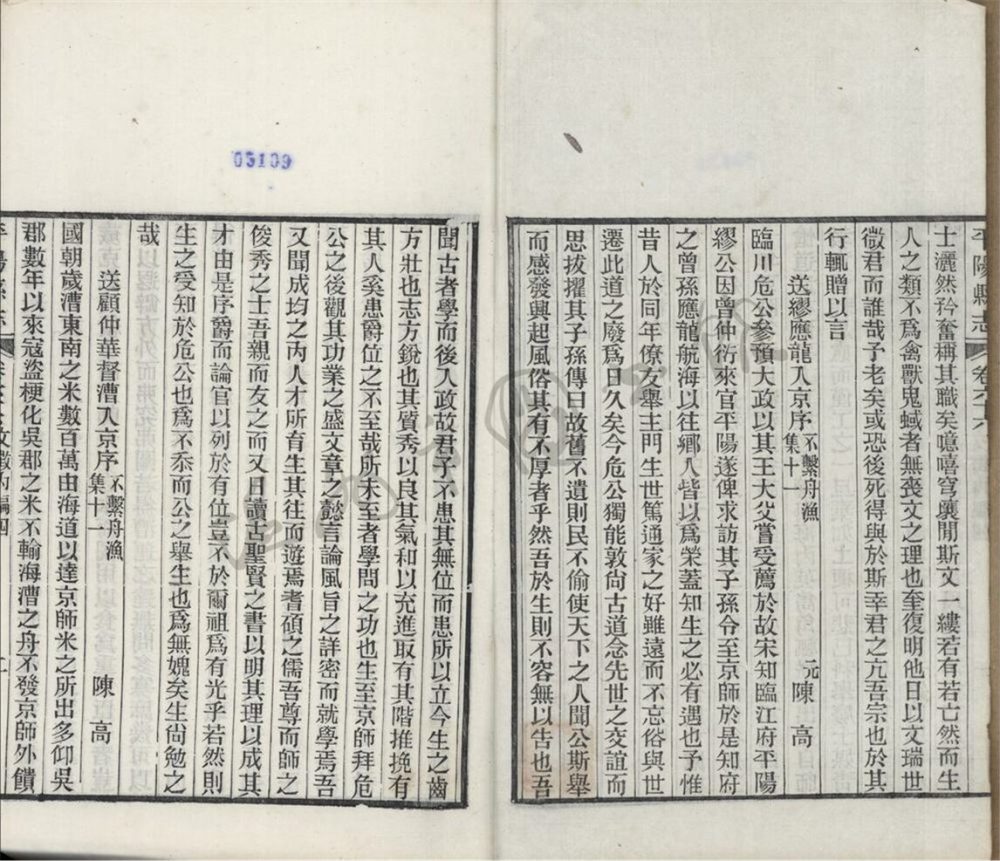 平陽縣志 卷六十六
士灑然矜奮稱其職矣噫嘻穹壤閒斯文一縷若有若亡然而生
人之類不爲禽獸鬼蜮者無喪文之理也奎復明他日以文瑞世
微君而誰哉予老矣或恐後死得與於斯幸君之亢吾宗也於其
行輒贈以言
送繆應龍入京序 不繫舟漁集十一 元 陳高
臨川危公參預大政以其王大父嘗受薦於故宋知臨江府平陽
繆公因曾仲衍來官平陽遂俾求訪其子孫令至京師於是知府
之曾孫應龍航海以往鄉人皆以爲榮蓋知生之必有遇也予惟
昔人於同年僚友舉主門生世篤通家之好雖遠而不忘俗與世
遷此道之廢爲日久矣今危公獨能敦尙古道念先世之交誼而
思拔擢其子孫傳曰故舊不遺則民不偷使天下之人聞公斯舉
而感發興起風俗其有不厚者乎然吾於生則不容無以告也吾
聞古者學而後入政故君子不患其無位而患所以立今生之齒
方壯也志方銳也其質秀以良其氣和以充進取有其階推挽有
其人奚患爵位之不至哉所未至者學問之功也生至京師拜危
公之後觀其功業之盛文章之懿言論風旨之詳密而就學焉吾
又聞成均之內人才所育生其往而遊焉耆碩之儒吾尊而師之
俊秀之士吾親而友之而又日讀古聖賢之書以明其理以成其
才由是序爵而論官以列於有位豈不於爾祖爲有光乎若然則
生之受知於危公也爲不忝而公之舉生也爲無媿矣生尙勉之
哉
送顧仲華督漕入京序 不繫舟漁集十一 陳高
國朝歲漕東南之米數百萬由海道以達京師米之所出多仰吳
郡數年以來寇盜梗化吳郡之米不輸海漕之舟不發京師外饋
05109